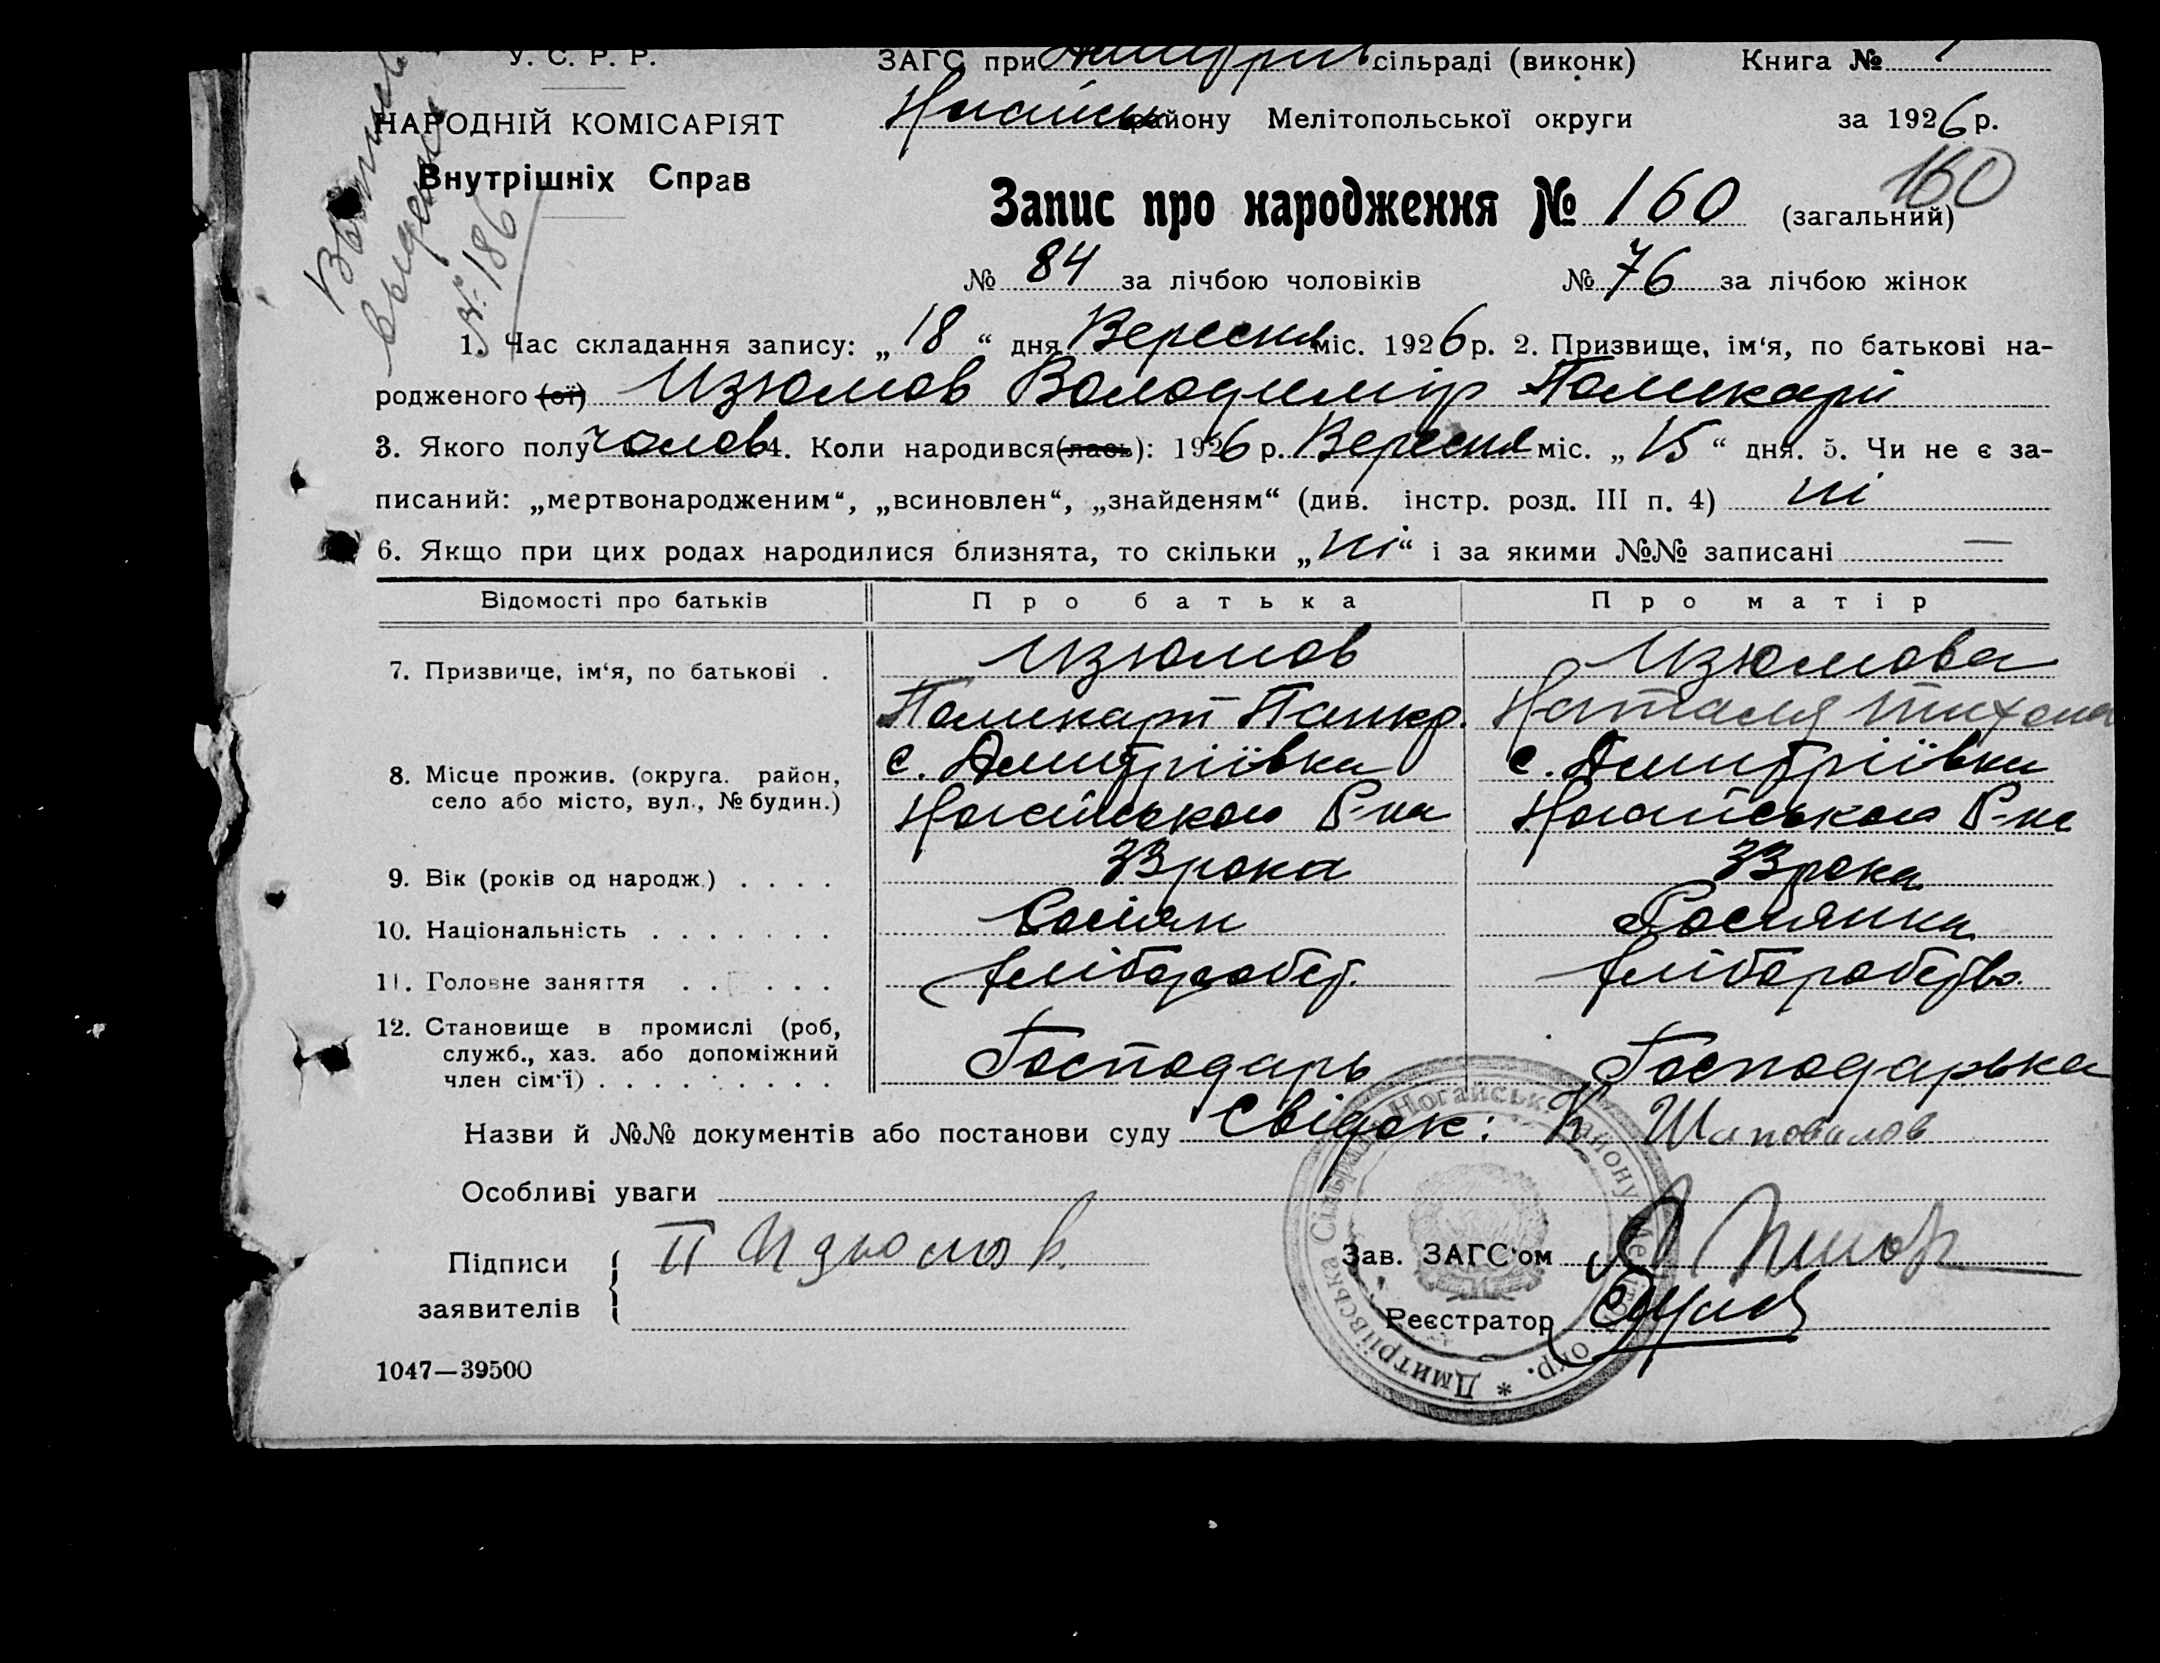 У. С. Р. Р. ЗАГС при Дмитрів сільраді (виконк) Книга №
НАРОДНІЙ КОМІСАРІЯТ району Мелітопольської округи за 1926 р.
Внутрішніх Справ
160
Запис про народження № 160 (загальний)
Выпись
выдана
№ 186
№ 84 за лічбою чоловіків № 76 за лічбою жінок
1. Час складання запису: „18“ дня Вересня міс. 1926 р. 2. Призвище, ім‘я, по батькові на-
родженого (ої) Изюмов Володимір Поликарп
3. Якого полу чолов 4. Коли народився(лась): 1926 р. Вересня міс. „15“ дня. 5. Чи не є за-
писаний: „мертвонародженим“, „всиновлен“, „знайденям“ (див. інстр. розд. III п. 4) ні
6. Якщо при цих родах народилися близнята, то скільки „ні“ і за якими №№ записані —
Відомості про батьків Про батька Про матір
7. Призвище, ім‘я, по батькові . Изюмов Изюмова
Поликарп Панкр. Наталя Тихона
8. Місце прожив. (округа. район, село або місто, вул., № будин.) с. Дмитріївка с. Дмитріївка
Ногайського Р-на Ногайського Р-на
9. Вік (років од народж.) . . . . 33 рока 33 рока
10. Національність . . . . . . . Росіян Росіянка
11. Головне заняття . . . . . . хліборобст. хліборобство.
12. Становище в промислі (роб,
служб., хаз. або допоміжний
член сім‘ї) . . . . . . . . . Господарь Господарька
Назви й №№ документів або постанови суду Свідок: К Шаповалов
Особливі уваги
Підписи
заявителів
П Изюмов.
Зав. ЗАГС‘ом
Реєстратор
Дмитріївська Сільрада Ногайськ. району Меліто окр. *
1047—39500